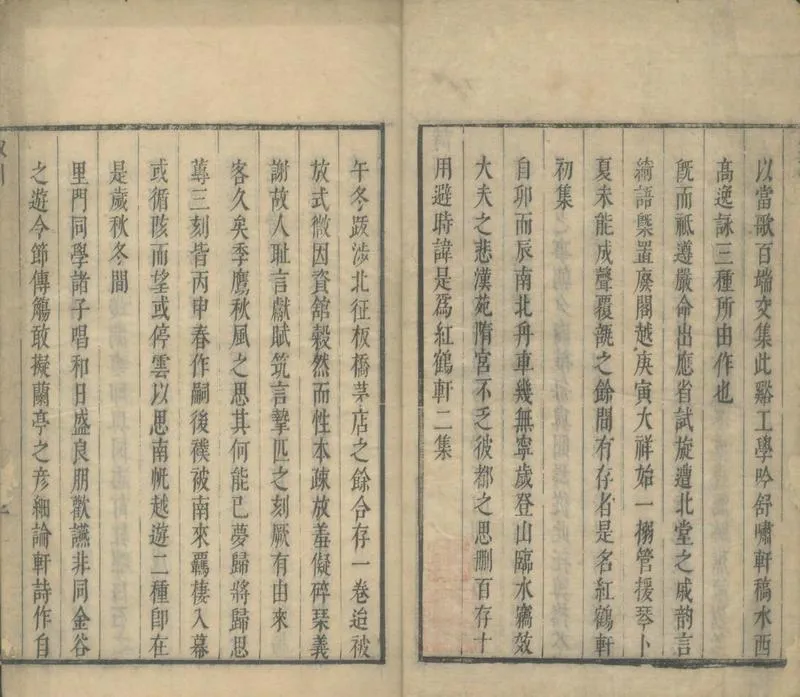 以當歌百端交集此谿工學吟舒嘯軒稿水西
高逸詠三種所由作也
旣而祗遵嚴命出應省試旋遭北堂之戚韵言
綺語槩置廢閣越庚寅大祥始一搦管援琴卜
夏未能成聲覆瓿之餘間有存者是名紅鶴軒
初集
自卯而辰南北舟車幾無寧歲登山臨水竊效
大夫之悲漢苑隋宮不乏彼都之思删百存十
用避時諱是爲紅鶴軒二集
午冬跋涉北征板橋茅店之餘合存一卷迨被
放式微因資舘穀然而性本疎放羞儗碎琴義
謝故人耻言獻賦筑言摯匹之刻厥有由來
客久矣季鷹秋風之思其何能已夢歸將歸思
蓴三刻皆丙申春作嗣後襆被南來羈棲入幕
或循陔而望或停雲以思南帆越遊二種卽在
是歲秋冬間
里門同學諸子唱和日盛良朋歡讌非同金谷
之遊令節傳觴敢擬蘭亭之彦細論軒詩作自